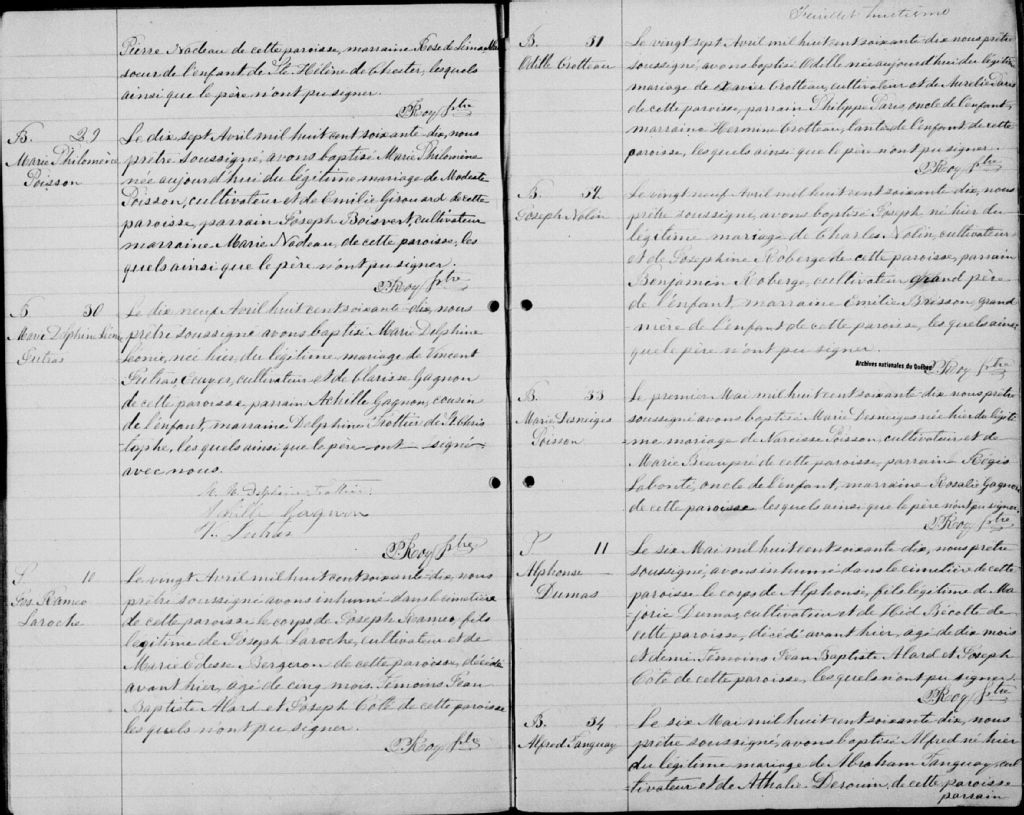 Pierre Nadeau de cette paroisse, marraine Rose de Lima
soeur de l'enfant de Ste Hélène de Chester, lesquels
ainsi que le père n'ont pu signer.
P. Roy ptre
B. 29
Marie Philomène
Poisson
Le dix sept Avril mil huit cent soixante-dix, nous
prêtre soussigné, avons baptisé Marie Philomène
née aujourd'hui du légitime mariage de Modeste
Poisson, cultivateur et de Emilie Girouard de cette
paroisse, parrain Joseph Boisvert, cultivateur
marraine Marie Nadeau, de cette paroisse, les
quels ainsi que le père n'ont pu signer.
P. Roy ptre
B. 30
Marie Delphine Léonie
Lutras
Le dix neuf Avril huit cent soixante-dix, nous
prêtre soussigné avons baptisé Marie Delphine
Léonie, née hier, du légitime mariage de Vincent
Lutras, Ecuyer, cultivateur et de Clarisse Gagnon
de cette paroisse, parrain Achille Gagnon, cousin
de l'enfant, marraine Delphine Trottier de St Chris
tophe, les quels ainsi que le père ont signé
avec nous.
M. Delphine Trottier
Achille Gagnon
V. Lutras
P. Roy ptre
S. 10
Jos. Raméo
Laroche
Le vingt Avril mil huit cent soixante-dix, nous
prêtre soussigné avons inhumé dans le cimetière
de cette paroisse le corps de Joseph Raméo, fils
légitime de Joseph Laroche, cultivateur et de
Marie Edesse Bergeron de cette paroisse, décédé
avant hier, agé de cinq mois. Témoins Jean
Baptiste Alard et Joseph Coté de cette paroisse
les quels n'ont pu signer.
P. Roy ptre
Feuillet huitième
B. 31
Odille Crotteau
Le vingt sept Avril mil huit cent soixante dix nous prêtre
soussigné, avons baptisé Odelle née aujourd'hui du légitime
mariage de Xavier Crotteau, cultivateur et de Aurélie Paris
de cette paroisse, parrain Philippe Paris, oncle de l'enfant,
marraine Hermine Crotteau, tante de l'enfant de cette
paroisse, les quels ainsi que le père n'ont pu signer.
P. Roy ptre
B. 32
Joseph Nolin
Le vingt neuf Avril mil huit cent soixante dix, nous
prêtre soussigné, avons baptisé Joseph né hier du
légitime mariage de Charles Nolin, cultivateur
et de Josephine Roberge de cette paroisse, parrain
Benjamin Roberge, cultivateur grand père
de l'enfant, marraine Emilie Brisson, grand
mère de l'enfant de cette paroisse, les quels ainsi
que le père n'ont pu signer.
Archives nationales du Québec
P. Roy ptre
B. 33
Marie Desneiges
Poisson
Le premier Mai mil huit cent soixante dix nous prêtre
soussigné avons baptisé Marie Desneiges née hier du légiti
me mariage de Narcisse Poisson, cultivateur et de
Marie Beaupré de cette paroisse, parrain Régis
Labonté, oncle de l'enfant, marraine Rosalie Gagnon
de cette paroisse lesquels ainsi que le père n'ont pu signer.
P. Roy ptre
S. 11
Alphonse
Dumas
Le six Mai mil huit cent soixante dix, nous prêtre
soussigné, avons inhumé dans le cimetière de cette
paroisse le corps de Alphonse, fils légitime de Ma
jorie Dumas, cultivateur et de Hed. Bécotte de
cette paroisse, décédé avant hier, agé de dix mois
et demi. Témoins Jean Baptiste Alard et Joseph
Coté de cette paroisse, les quels n'ont pu signer.
P. Roy ptre
B. 34
Alfred Tanguay
Le six Mai mil huit cent soixante dix, nous
prêtre soussigné, avons baptisé Alfred né hier
du légitime mariage de Abraham Tanguay, cul
tivateur et de Athalie Derouin, de cette paroisse
parrain